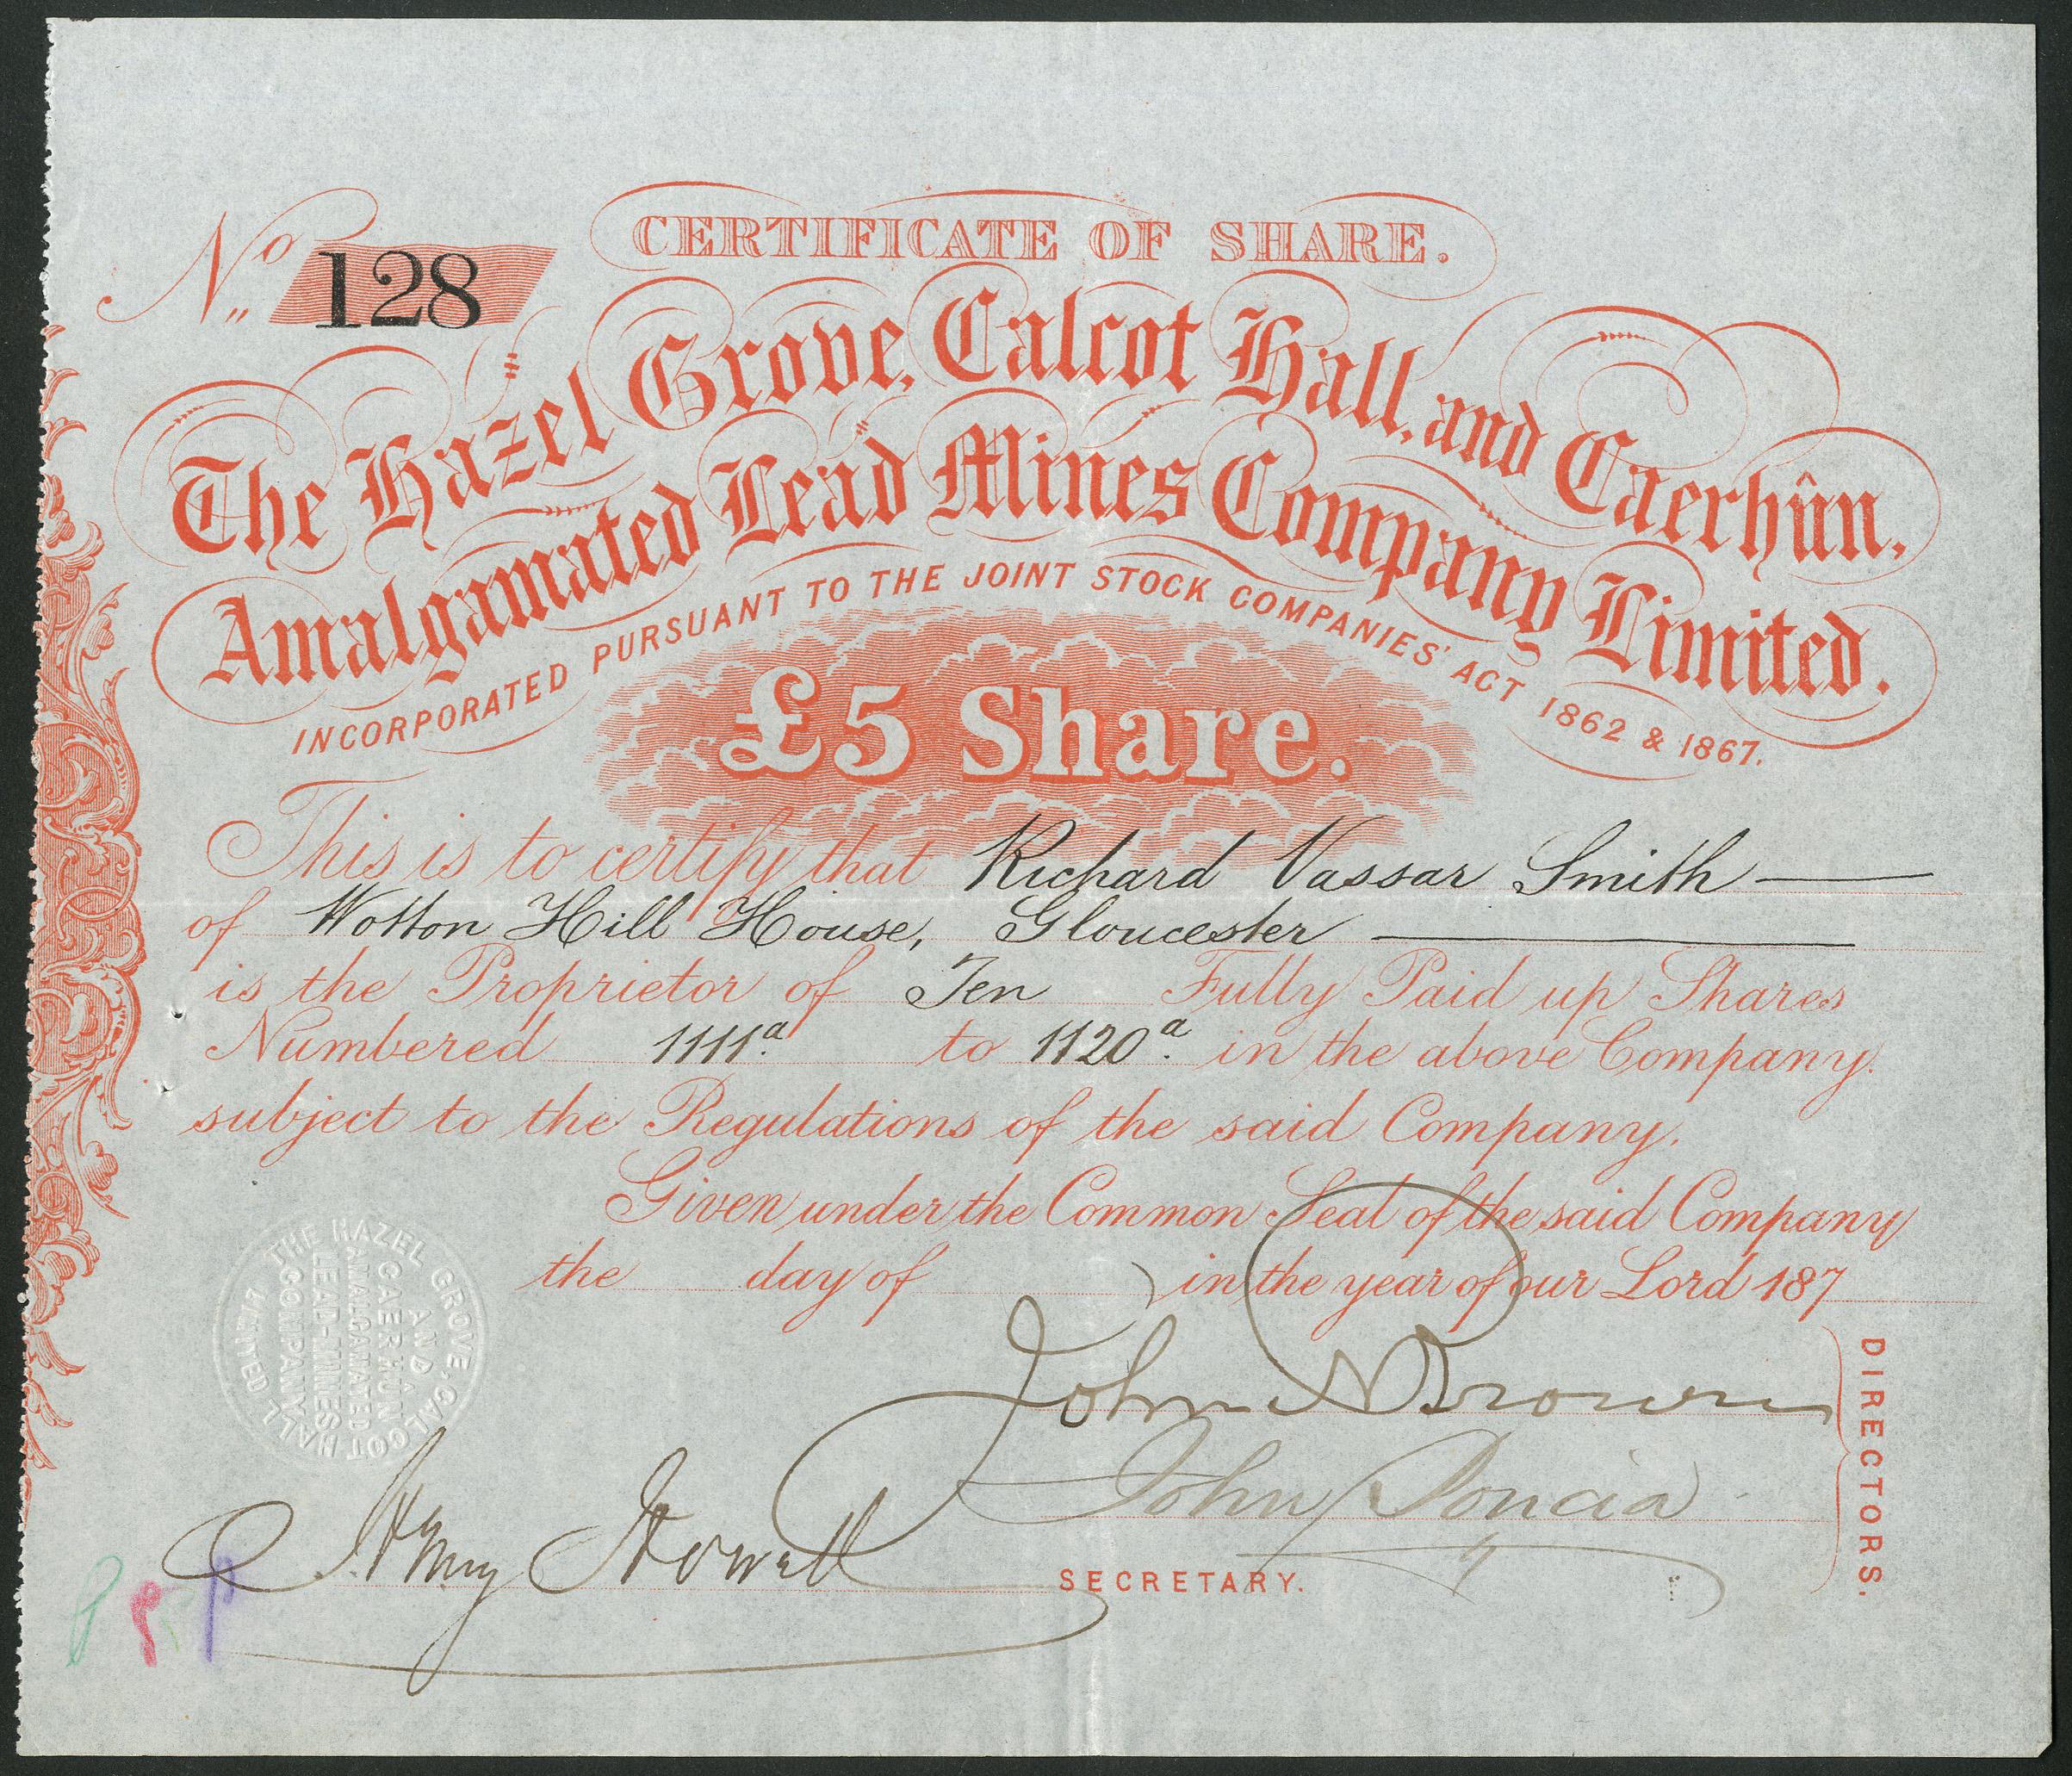 No 128
CERTIFICATE OF SHARE.
The Hazel Grove, Calcot Hall, and Caerhûn,
Amalgamated Lead Mines Company Limited.
INCORPORATED PURSUANT TO THE JOINT STOCK COMPANIES' ACT 1862 & 1867.
£5 Share.
This is to certify that Richard Vassar Smith
of Wotton Hill House, Gloucester
is the Proprietor of Ten Fully Paid up Shares
Numbered 1111a. to 1120a. in the above Company.
subject to the Regulations of the said Company.
Given under the Common Seal of the said Company
the day of in the year of our Lord 187
THE HAZEL GROVE, CALCOT HALL
AND
CAERHUN
AMALGAMATED
LEAD-MINES
COMPANY
LIMITED
John Brown
John Poncia
DIRECTORS.
Henry Howell
SECRETARY.